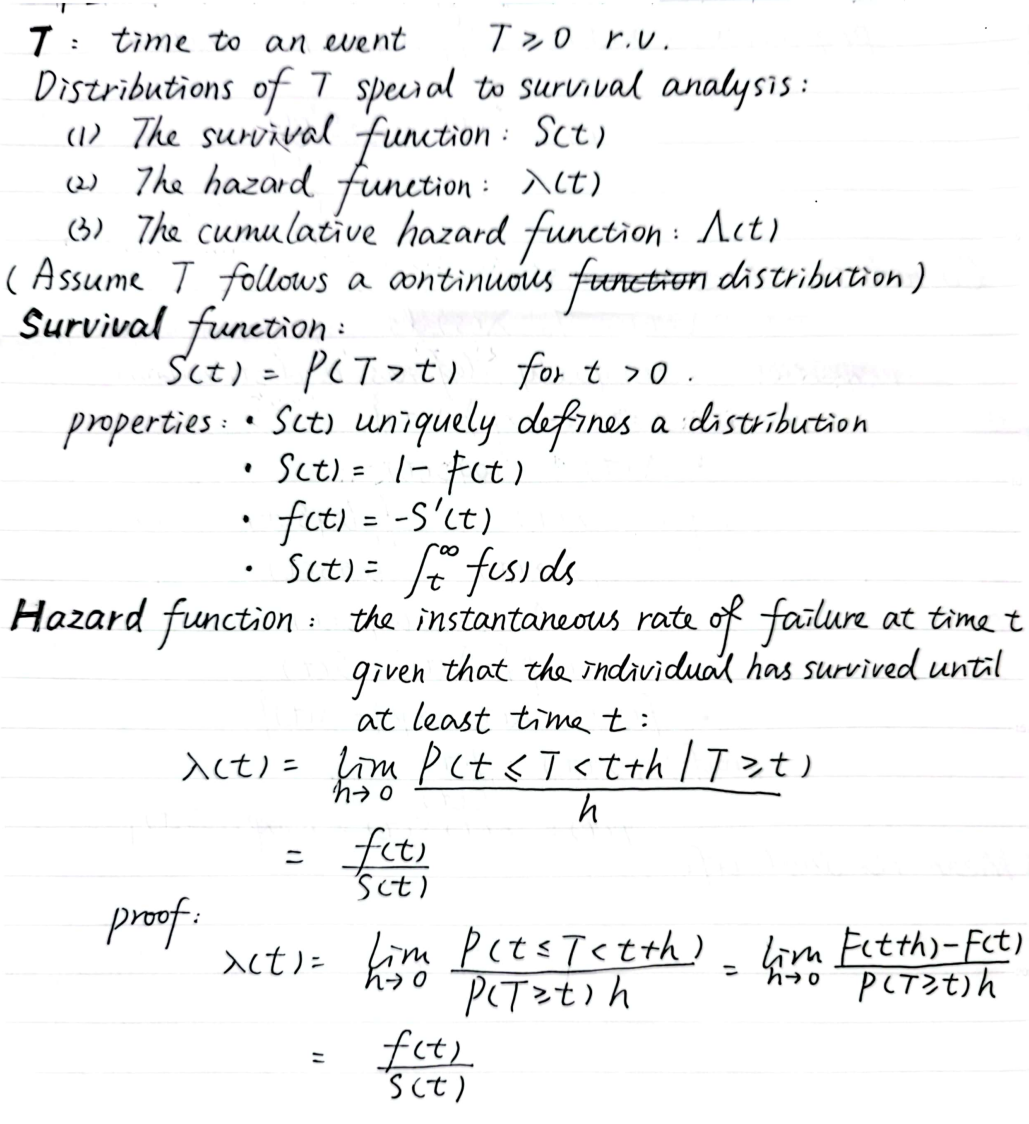 T : time to an event T ⩾ 0 r.v.
Distributions of T special to survival analysis :
(1) The survival function : S(t)
(2) The hazard function : λ(t)
(3) The cumulative hazard function : Λ(t)
( Assume T follows a continuous ~~function~~ distribution )
Survival function :
S(t) = P(T > t) for t > 0 .
properties : • S(t) uniquely defines a distribution
• S(t) = 1 - F(t)
• f(t) = -S'(t)
• S(t) = ∫_t^∞ f(s) ds
Hazard function : the instantaneous rate of failure at time t
given that the individual has survived until
at least time t :
λ(t) = lim_{h→0} P(t ⩽ T < t+h | T ⩾ t) / h
= f(t) / S(t)
proof :
λ(t) = lim_{h→0} P(t ≤ T < t+h) / P(T ≥ t) h = lim_{h→0} F(t+h) - F(t) / P(T ≥ t) h
= f(t) / S(t)